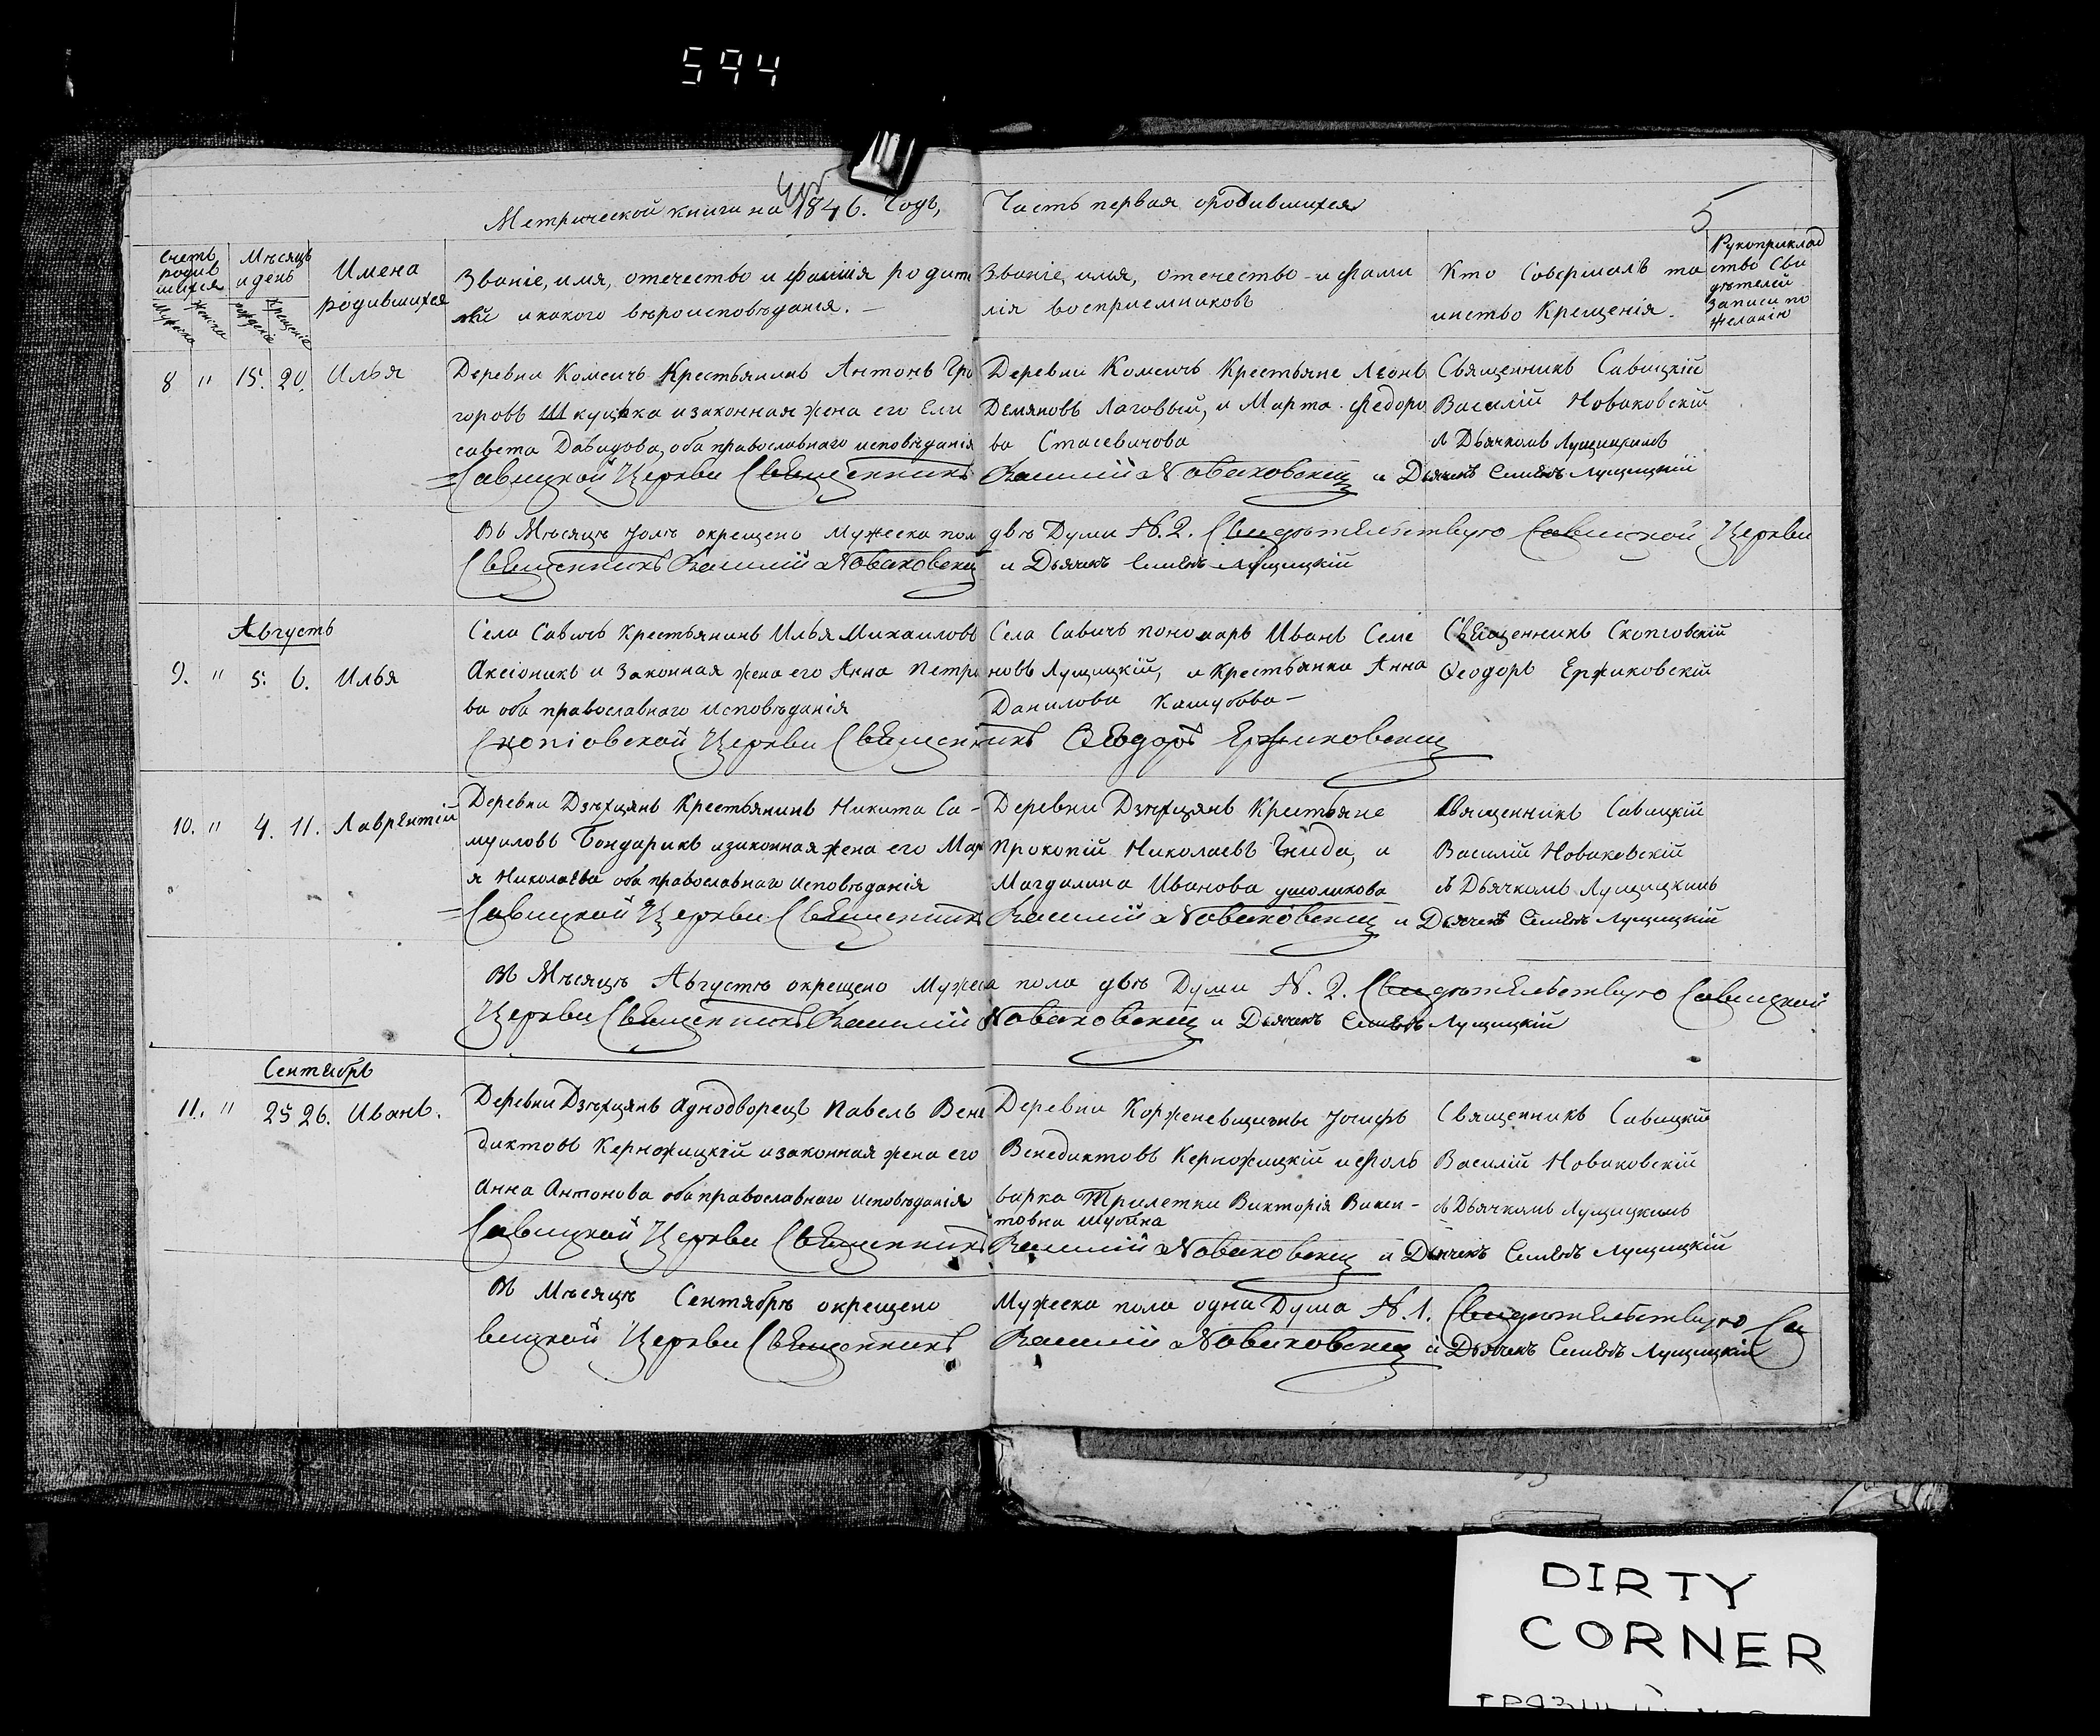 594
Метрической книги на 1846. Годъ, Часть первая ородившихся
5
Счетъ родив шихся
Мѣсяцъ и день
Имена родившихся
Званіе, имя, отечество и фамилія родите
лей и какого вѣроисповѣданія. —
Званіе, имя, отечество и фами
лія восприемниковъ
Кто Совершалъ та
инство Крещенія.
Рукоприклад
ство Сви
дѣтелей
записи по
желанію
Мужска
Женска
рожденіе
Крещеніе
8 " 15. 20. Илья
Деревни Комсичъ Крестьянинъ Антонъ Гри
горовъ Шкуцка изаконная жена его Ели
савета Давидова, оба православнаго исповѣданія
Деревни Комсичъ Крестьяне Леонъ
Демяновъ Лаговый, и Марта Федоро
ва Стасевичова
Священникъ Савицкій
Василій Новаковскій
съ Дьячкомъ Лущицкимъ
Савицкой Церкви Священникъ Василій Новаковскій и Дьячекъ Семенъ Лущицкій
Въ Мѣсяцѣ Іюлѣ окрещено Мужеска пол двѣ Души N. 2. Свидѣтельствую Савицкой Церкви
Священникъ Василій Новаковскій и Дьячекъ Семенъ Лущицкій
Августъ
9. " 5. 6. Илья
Села Савичъ Крестьянинъ Илья Михаиловъ
Аксіоникъ и Законная жена его Анна Петро
ва оба православнаго исповѣданія
Села Савичъ пономарь Иванъ Семе
новъ Лущицкій, и Крестьянка Анна
Данилова Кашубова —
Священникъ Скопіовскій
Ѳеодоръ Ержиковскій
Скопіовской Церкви Священникъ Ѳеодоръ Ержиковскій
10. " 4. 11. Лаврентій
Деревни Дзѣхцянъ Крестьянинъ Никита Са-
муиловъ Бондарикъ изаконная жена его Мар
я Николаева оба православнаго исповѣданія
Деревни Дзѣхцянъ Крестьяне
Прокопій Николаевъ Гнида, и
Магдалина Иванова
Священникъ Савицкій
Василій Новаковскій
съ Дьячкомъ Лущицкимъ
Савицкой Церкви Священникъ Василій Новаковскій и Дьячекъ Семенъ Лущицкій
Въ Мѣсяцѣ Августѣ окрещено Мужеска пола двѣ Души N. 2. Свидѣтельствую Савицкой
Церкви Священникъ Василій Новаковскій и Дьячекъ Семенъ Лущицкій
Сентябрь
11. " 25 26. Иванъ.
Деревни Дзѣхцянъ Аднодворецъ Павелъ Вене
диктовъ Керножицкій изаконная жена его
Анна Антонова оба православнаго исповѣданія
Деревни Корженевщизны Іосифъ
Венедиктовъ Керножицкій и Фоль
варка Трилетки Викторія Викен-
товна Шубина
Священникъ Савицкій
Василій Новаковскій
съ Дьячкомъ Лущицкимъ
Савицкой Церкви Священникъ Василій Новаковскій и Дьячекъ Семенъ Лущицкій
Въ Мѣсяцѣ Сентябрѣ окрещено Мужеска пола одна Душа N. 1. Свидѣтельствую Са
вицкой Церкви Священникъ Василій Новаковскій и Дьячекъ Семенъ Лущицкій
DIRTY
CORNER